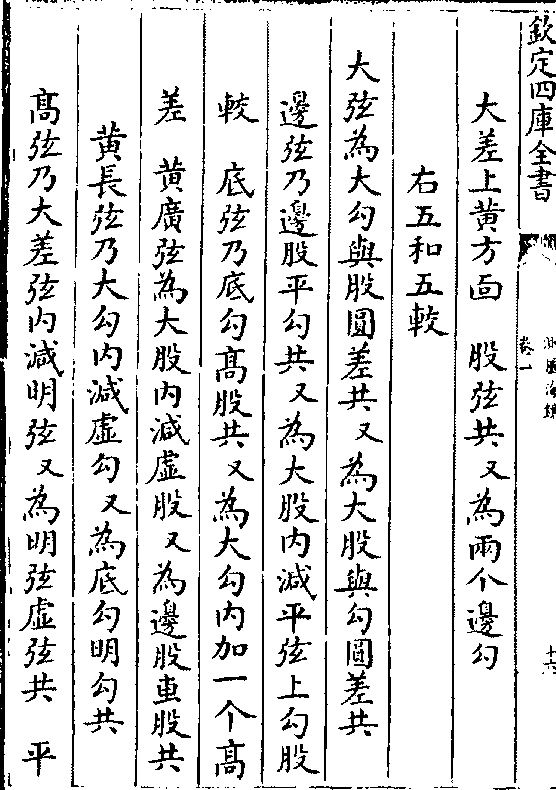 欽定四庫全書
卷一
十六
大差上黄方面　股弦共又為兩个邊勾
右五和五較
大弦為大勾與股圓差共又為大股與勾圓差共
邊弦乃邊股平勾共又為大股内減平弦上勾股
較　底弦乃底勾髙股共又為大勾内加一个髙
差　黄廣弦為大股内減虚股又為邊股𤰱股共
黄長弦乃大勾内減虚勾又為底勾明勾共
髙弦乃大差弦内減明弦又為明弦虚弦共　平